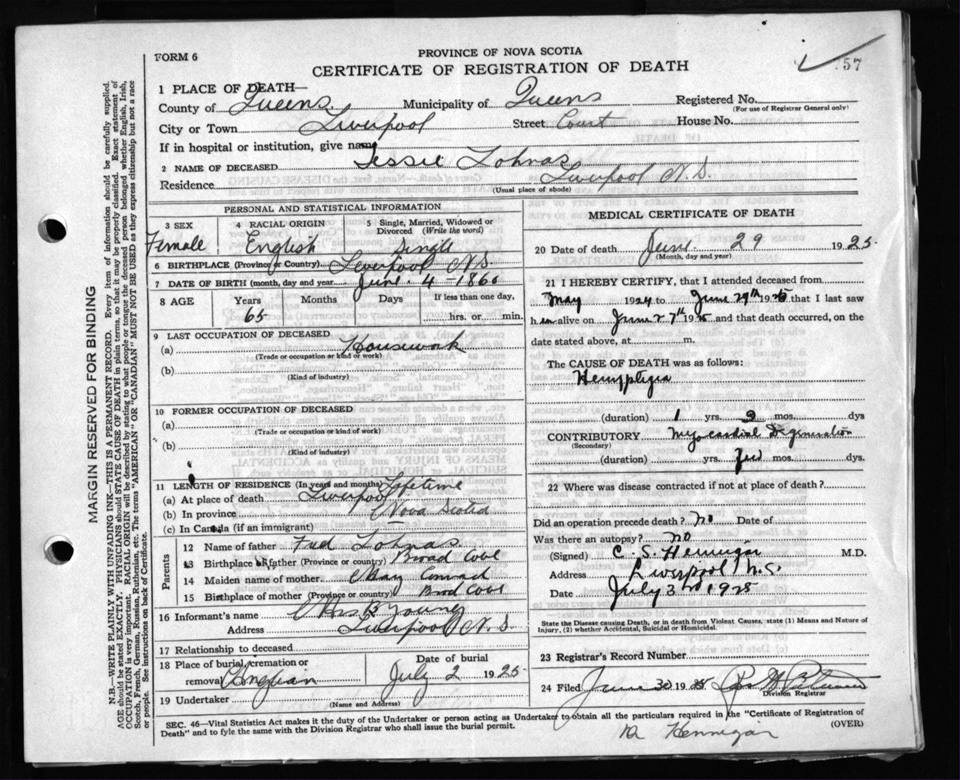 FORM 6
PROVINCE OF NOVA SCOTIA
57
CERTIFICATE OF REGISTRATION OF DEATH
1 PLACE OF DEATH—
County of Queens Municipality of Queens Registered No.
(For use of Registrar General only)
City or Town Liverpool Street Court House No.
If in hospital or institution, give name
2 NAME OF DECEASED Jessie Lohnas
Residence Liverpool N.S.
(Usual place of abode)
PERSONAL AND STATISTICAL INFORMATION
3 SEX 4 RACIAL ORIGIN 5 Single, Married, Widowed or Divorced (Write the word)
Female English Single
6 BIRTHPLACE (Province or Country) Liverpool N.S.
7 DATE OF BIRTH (month, day and year) June 4 - 1860
8 AGE Years Months Days If less than one day,
65 hrs. or min.
9 LAST OCCUPATION OF DECEASED
(a) Housework
(Trade or occupation or kind of work)
(b)
(Kind of industry)
10 FORMER OCCUPATION OF DECEASED
(a)
(Trade or occupation or kind of work)
(b)
(Kind of industry)
11 LENGTH OF RESIDENCE (In years and months) Lifetime
(a) At place of death Liverpool
(b) In province Nova Scotia
(c) In Canada (if an immigrant)
Parents
12 Name of father Fred Lohnas
13 Birthplace of father (Province or country) Broad Cove
14 Maiden name of mother May Conrad
15 Birthplace of mother (Province or country) Brod Cove
16 Informant's name Mrs B Young
Address Liverpool N.S.
17 Relationship to deceased
18 Place of burial, cremation or removal Date of burial
July 2 1925
19 Undertaker
(Name and Address)
MEDICAL CERTIFICATE OF DEATH
20 Date of death June 29 1925
(Month, day and year)
21 I HEREBY CERTIFY, that I attended deceased from
May 1924 to June 29th 1925 that I last saw
h er alive on June 27th 1925 and that death occurred, on
date stated above, at m.
The CAUSE OF DEATH was as follows:
Hemiplegia
(duration) 1 yrs. 2 mos. dys
CONTRIBUTORY Myocardial Degeneration
(Secondary)
(duration) yrs. mos. dys.
22 Where was disease contracted if not at place of death?
Did an operation precede death? No Date of
Was there an autopsy? No
(Signed) C. S. Hennigar M.D.
Address Liverpool N.S.
Date July 3rd 1925
State the Disease causing Death, or in death from Violent Causes, state (1) Means and Nature of Injury, (2) whether Accidental, Suicidal or Homicidal.
23 Registrar's Record Number
24 Filed June 30 1925
Division Registrar
SEC. 46—Vital Statistics Act makes it the duty of the Undertaker or person acting as Undertaker to obtain all the particulars required in the "Certificate of Registration of
Death" and to fyle the same with the Division Registrar who shall issue the burial permit.
(OVER)
Hennigar
MARGIN RESERVED FOR BINDING
N.B.—WRITE PLAINLY WITH UNFADING INK—THIS IS A PERMANENT RECORD. Every item of information should be carefully supplied.
AGE should be stated EXACTLY. PHYSICIANS should STATE CAUSE OF DEATH in plain terms, so that it may be properly classified. Exact statement of
OCCUPATION is very important. RACIAL ORIGIN will be described by stating to what people or tongue the deceased person belonged whether English, Irish,
Scotch, French, German, Russian, Ruthenian, etc. The terms "AMERICAN" or "CANADIAN" MUST NOT BE USED as they express citizenship but not a race
or people. See instructions on back of Certificate.